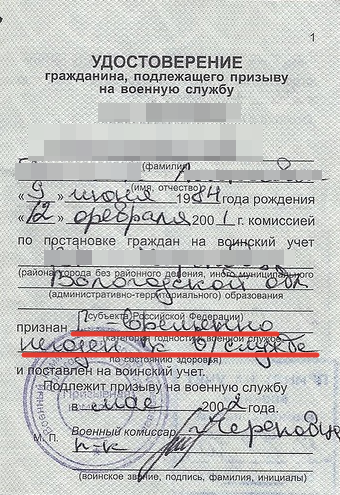 1
УДОСТОВЕРЕНИЕ
гражданина, подлежащего призыву
на военную службу
(фамилия)
(имя, отчество)
« 9 » июня 1984 года рождения
« 12 » февраля 2001 г. комиссией
по постановке граждан на воинский учет
(района города без районного деления, иного муниципального
Вологодской обл
(административно-территориального) образования
(субъекта Российской Федерации)
признан Г временно
(категория годности к военной службе
негоден к в/службе
по состоянию здоровья)
и поставлен на воинский учет.
Подлежит призыву на военную службу
в мае 2002 года.
М. П. Военный комиссар
п-к
(воинское звание, подпись, фамилия, инициалы)